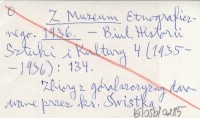 Z Muzeum Etnograficz-
nego. 1936. – Biul. Historii
Sztuki i Kultury 4 (1935-
-1936) : 134.
Zbiory z góralszczyzny daro-
wane przez ks. Świstka.